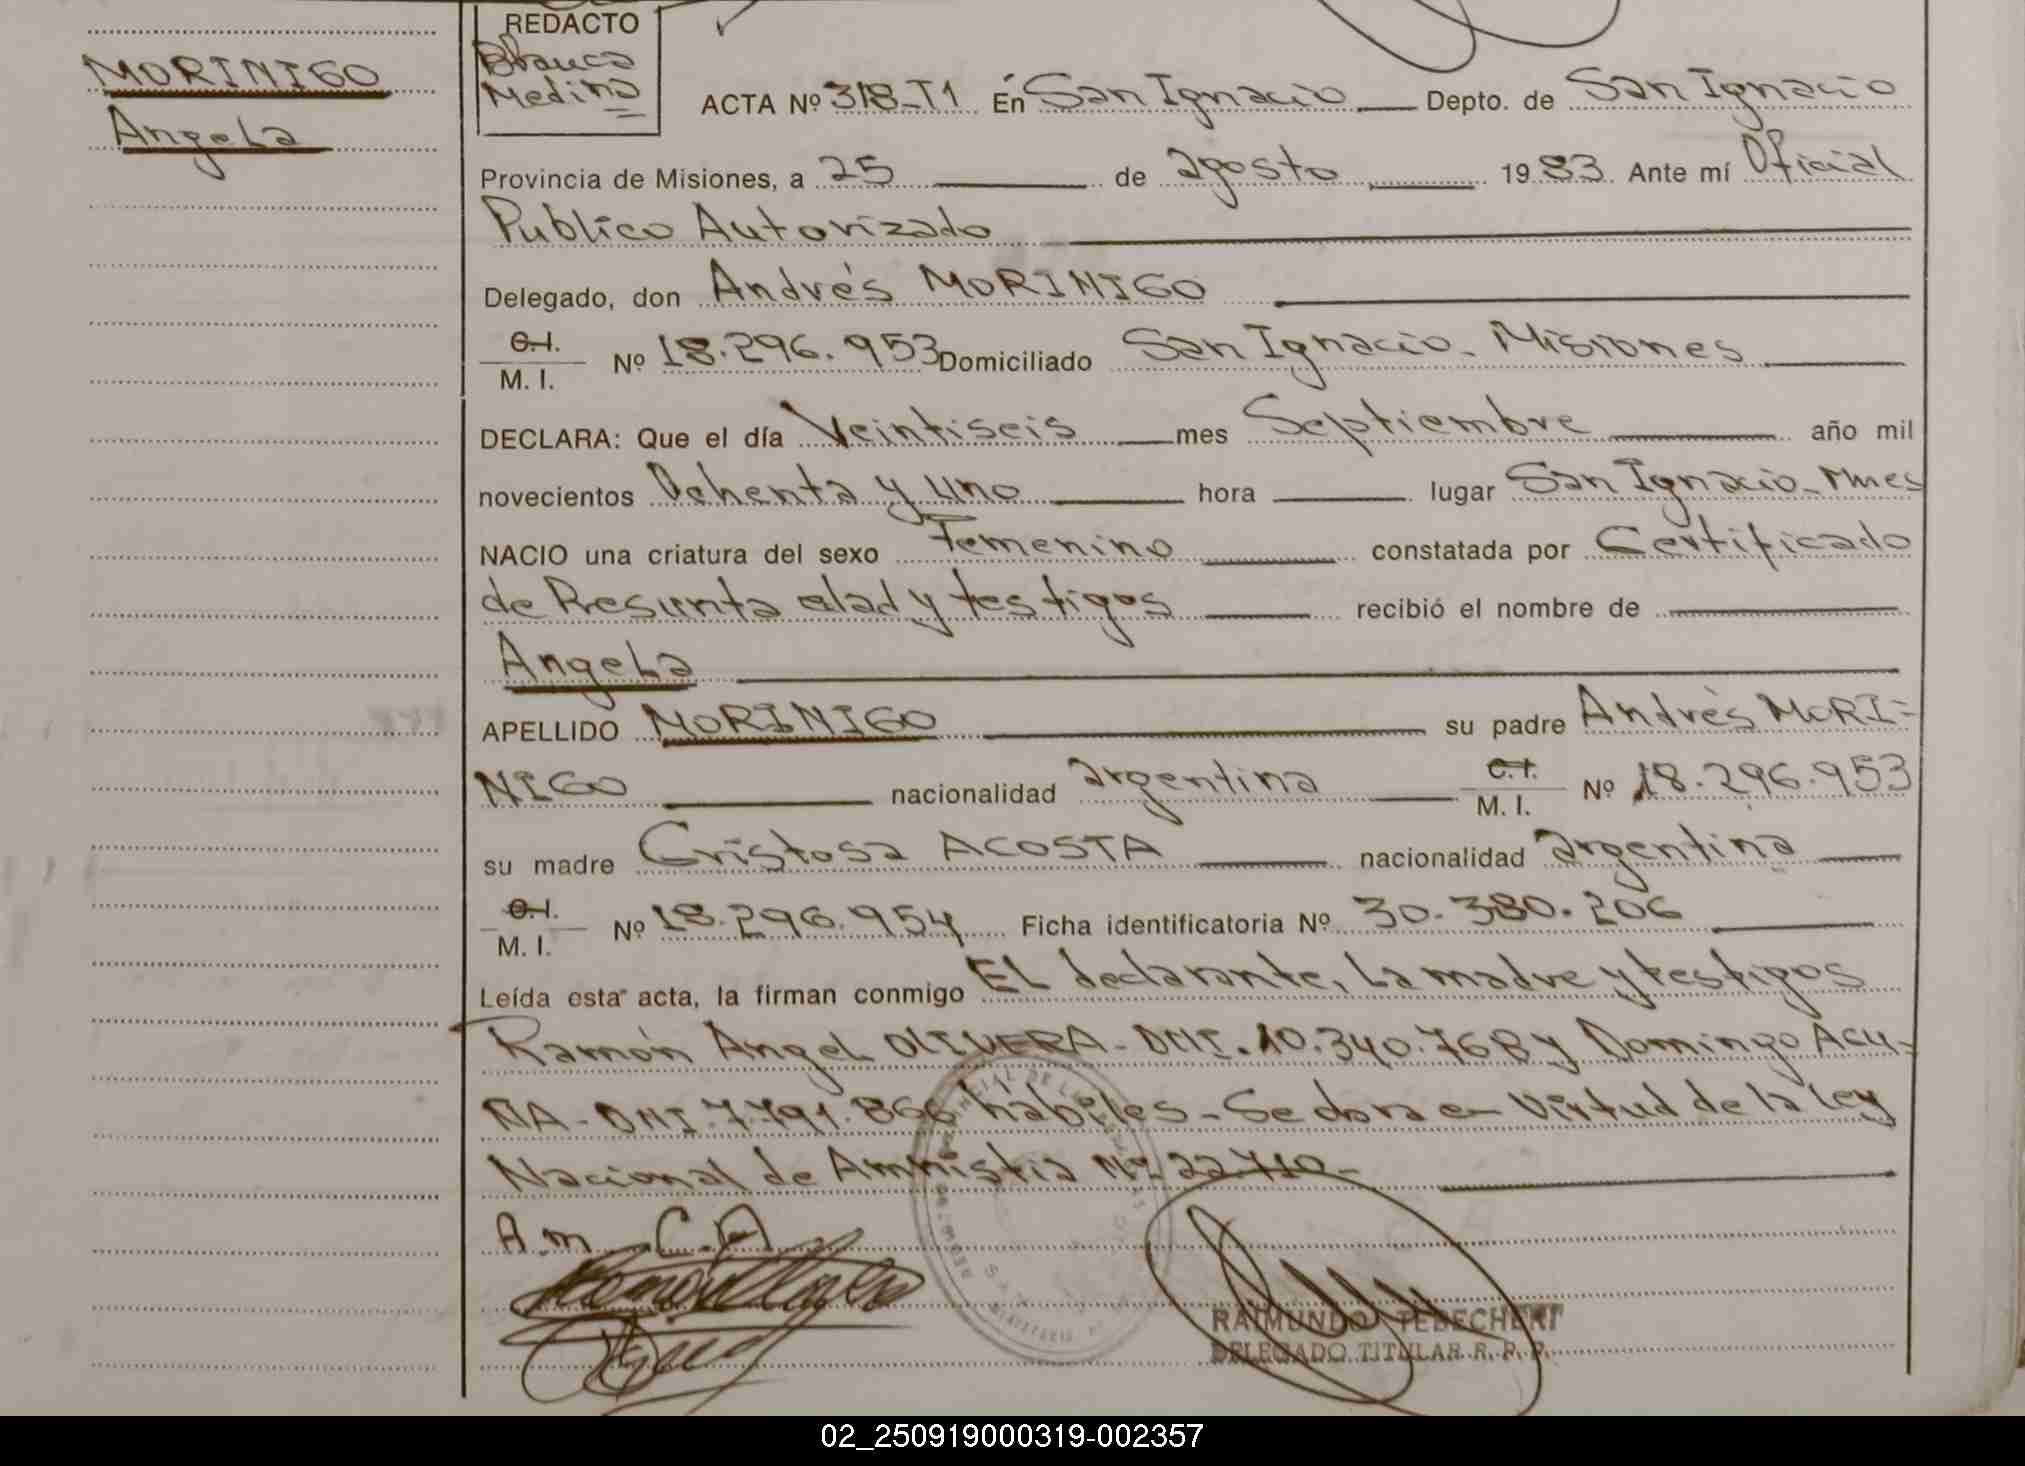 MORINIGO
Angela
REDACTO
Blanca
Medina
ACTA Nº 318-T1 En San Ignacio Depto. de San Ignacio
Provincia de Misiones, a 25 de agosto 1983 Ante mí Oficial
Publico Autorizado
Delegado, don Andrés MORINIGO
C.I.
M. I. Nº 18.296.953 Domiciliado San Ignacio - Misiones
DECLARA: Que el día Veintiseis mes Septiembre año mil
novecientos Ochenta y uno hora lugar San Ignacio - Mnes
NACIO una criatura del sexo Femenino constatada por Certificado
de Presunta edad y testigos recibió el nombre de
Angela
APELLIDO MORINIGO su padre Andrés MORI=
NIGO nacionalidad argentina C.I. M. I. Nº 18.296.953
su madre Cristosa ACOSTA nacionalidad argentina
C.I.
M. I. Nº 18.296.954 Ficha identificatoria Nº 30.380.206
Leída esta acta, la firman conmigo EL declarante, La madre y testigos
Ramón Angel OLIVERA - DNI. 10.340.768 y Domingo ACU-
ÑA - DNI. 7.791.866 habiles - Se labra en Virtud de la Ley
Nacional de Amnistia Nº 22.410 -
A.m C.A
RAIMUNDO TEBECHERI
DELEGADO TITULAR R. P. P.
02_250919000319-002357